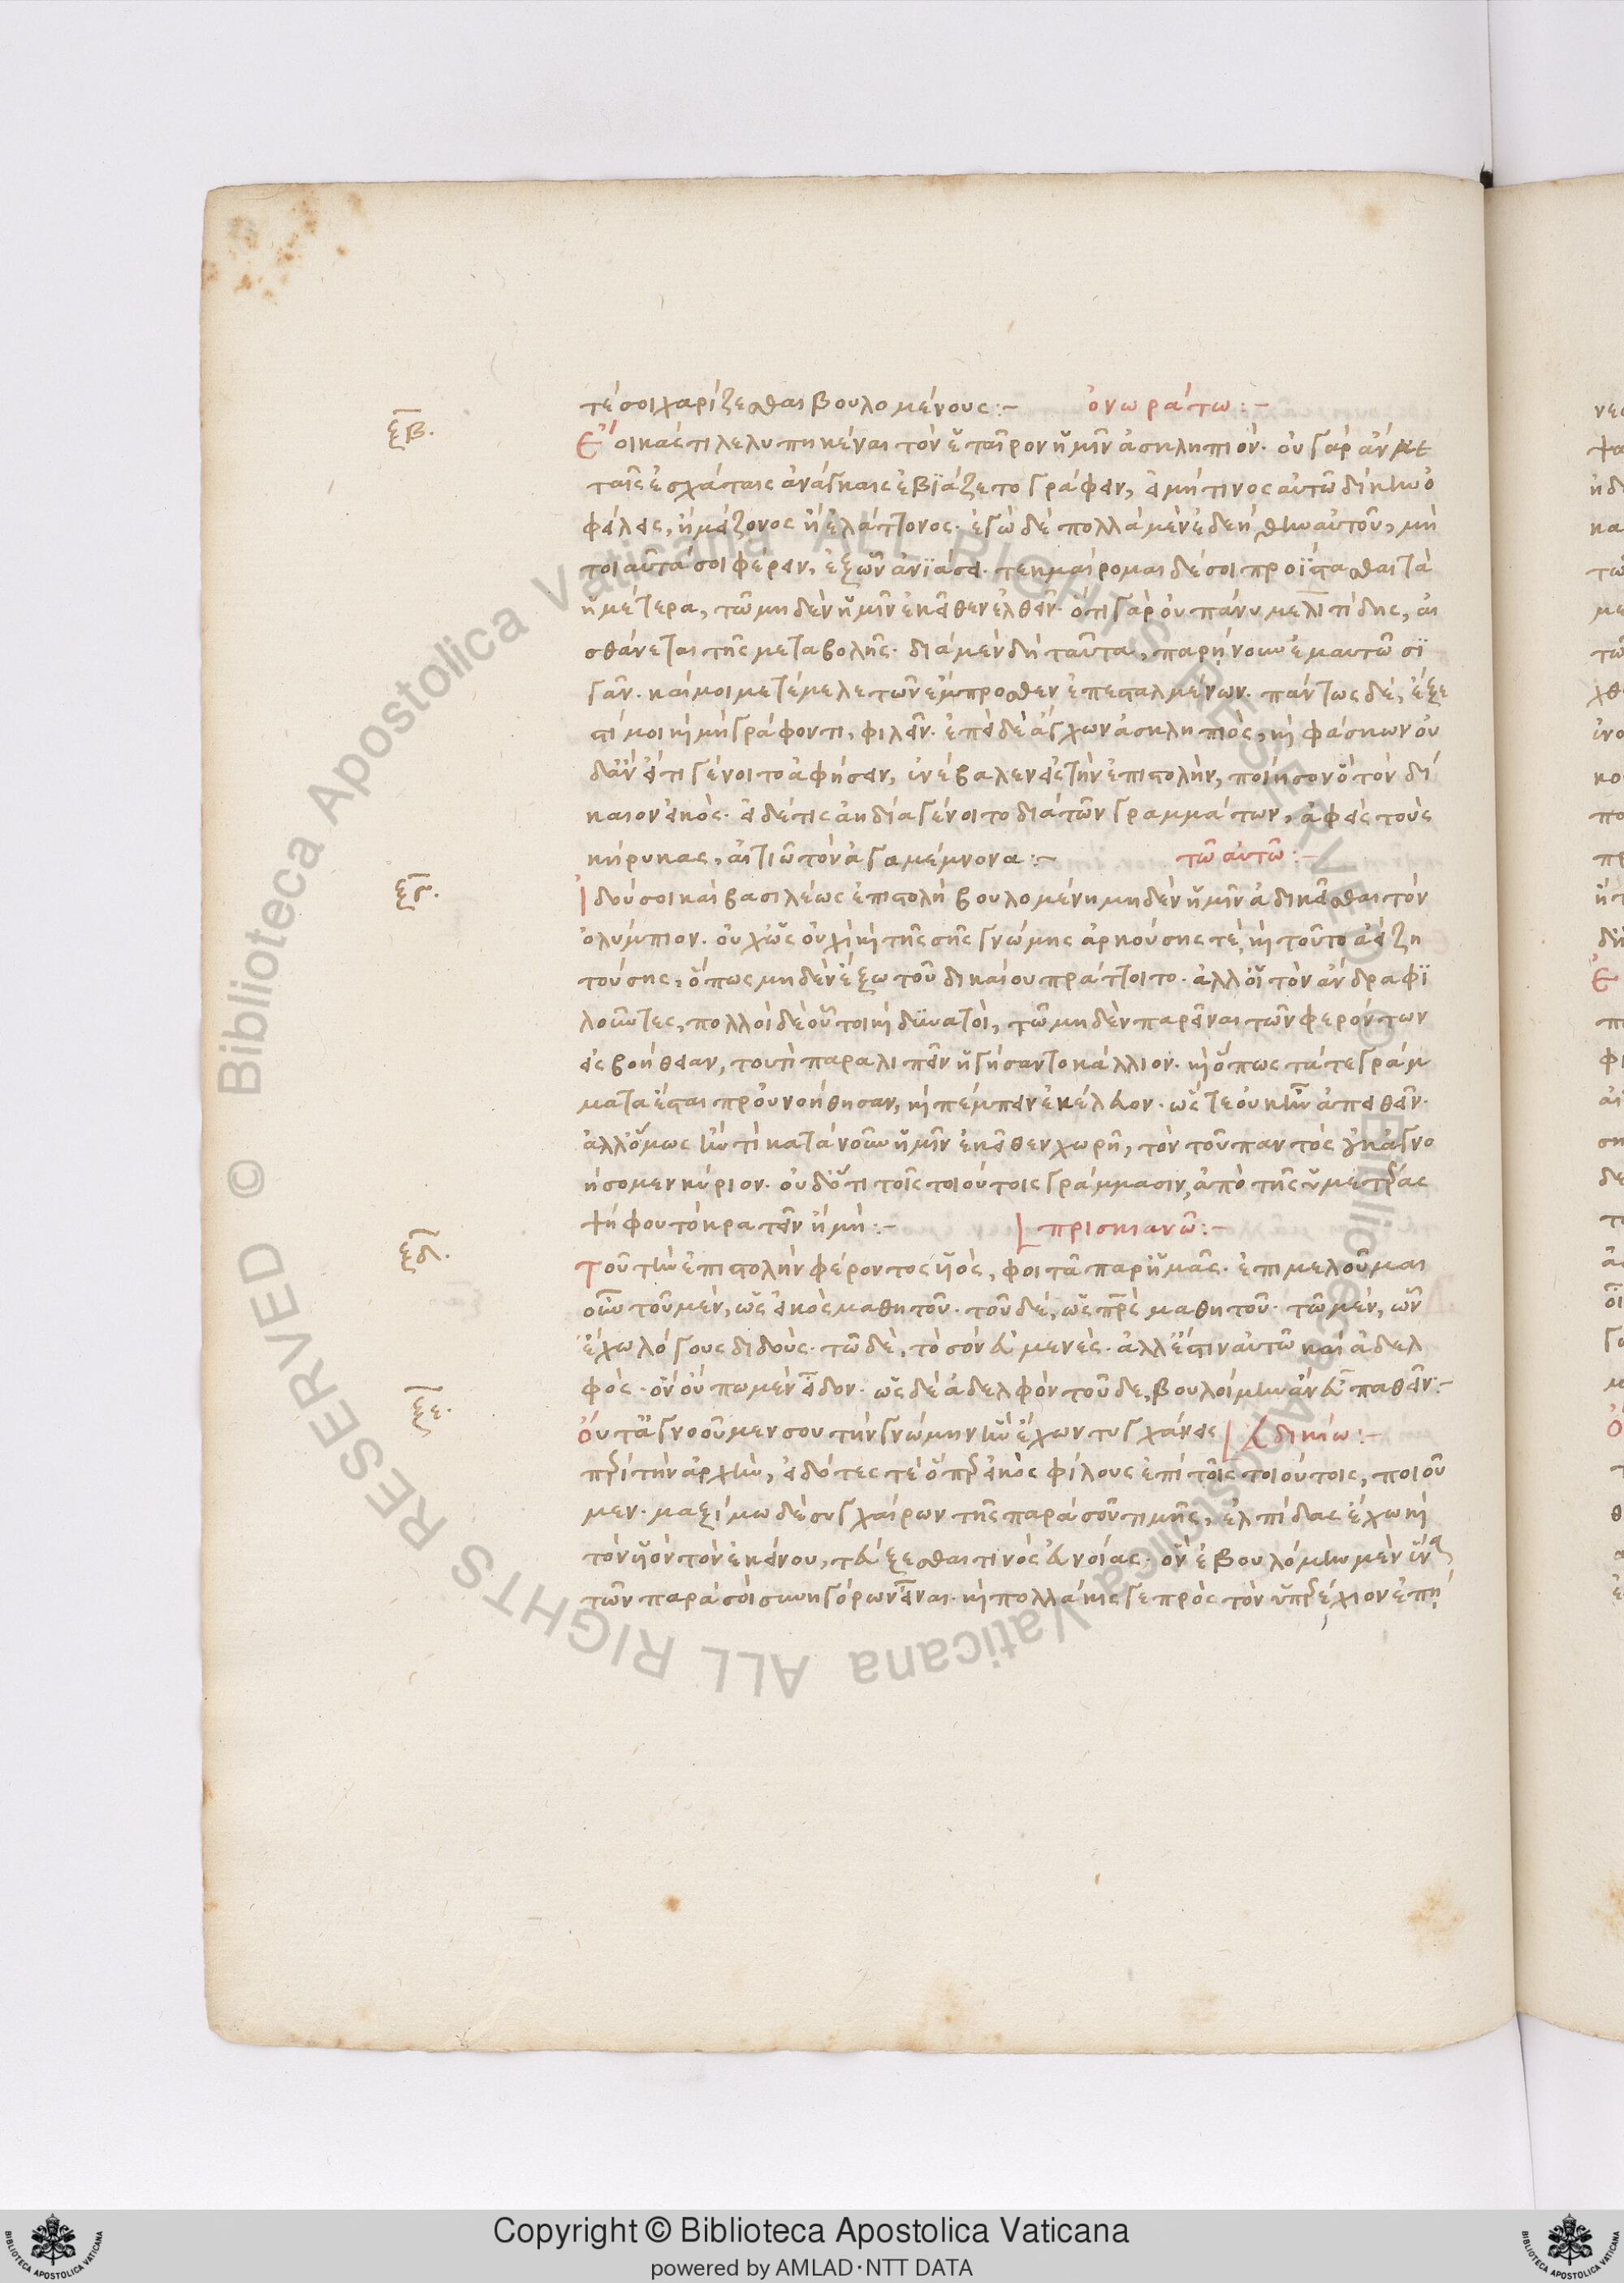 τέ σοι χαρίζεσθαι βουλομένους :- ὀνωράτω :-
ξβ.
Ἔοικας τι λελυπηκέναι τὸν ἑταῖρον ἡμῖν ἀσκληπιόν· οὐ γὰρ ἂν με
ταῖς ἐσχάταις ἀνάγκαις ἐβιάζετο γράφειν, εἰ μή τινος αὐτῶ δίκην ὀ
φείλεις, ἢ μείζονος ἢ ἐλάττονος· ἐγὼ δὲ πολλὰ μὲν ἐδεήθην αὐτοῦ, μὴ
τοιαῦτά σοι φέρειν, ἐξ ὧν ἀνιάσει· τεκμαίρομαι δέ σοι προΐστασθαι τὰ
ἡμέτερα, τῶ μηδὲν ἡμῖν ἐκεῖθεν ἐλθεῖν· ὅτι γὰρ οὐ πάνυ μελιτίδης, αἰ
σθάνεται τῆς μεταβολῆς· διὰ μὲν δὴ ταῦτα, παρήνουν ἐμαυτῶ σι
γᾶν· καί μοι μετέμελε τῶν ἔμπροσθεν ἐπεσταλμένων· πάντως δέ, ἔξε
στί μοι κὶ μὴ γράφοντι, φιλεῖν· ἐπεὶ δὲ ἄγχων ἀσκληπιός, κὶ φάσκων οὐ
δ' ἂν εἴ τι γένοιτο ἀφήσειν, ἐνέβαλεν εἰς τὴν ἐπιστολήν, ποίησον ὃ τὸν δί
καιον εἰκός· εἰ δέ τις ἀηδία γένοιτο διὰ τῶν γραμμάτων, ἀφεὶς τοὺς
κήρυκας, αἰτιῶ τὸν ἀγαμέμνονα :- τῶ αὐτῶ :-
ξγ.
Ἰδού σοι καὶ βασιλέως ἐπιστολὴ βουλομένη μηδὲν ἡμῖν ἀδικεῖσθαι τὸν
ὀλύμπιον· οὐχ ὡς οὐχὶ κὶ τῆς σῆς γνώμης ἀρκούσης τὲ, κὶ τοῦτο ἀεὶ ζη
τούσης, ὅπως μηδὲν ἔξω τοῦ δικαίου πράττοιτο· ἀλλ' οἱ τὸν ἄνδρα φι
λοῦντες, πολλοὶ δὲ οὗτοι κὶ δυνατοί, τῶ μηδὲν παρεῖναι τῶν φερόντων
εἰς βοήθειαν, τουτὶ παραλιπεῖν ἡγήσαντο κάλλιον· κὶ ὅπως τά τε γράμ
ματα ἔσται προὐνοήθησαν, κὶ πέμπειν ἐκέλευον· ὥς τε οὐκ ἦν ἀπειθεῖν·
ἀλλ' ὅμως ἤν τι κατὰ νοῦν ἡμῖν ἐκεῖθεν χωρῆ, τὸν τοῦ παντὸς σὲ κἀγνο
ήσομεν κύριον· οὐδ' ὅτι τοῖς τοιούτοις γράμμασιν, ἀπὸ τῆς ὑμετέρας
ψήφου τὸ κρατεῖν ἢ μὴ :- πρισκιανῶ :-
ξδ.
Τοῦ τὴν ἐπιστολὴν φέροντος υἱός, φοιτᾶ παρ' ἡμᾶς· ἐπιμελοῦμαι
οὖν τοῦ μέν, ὡς εἰκὸς μαθητοῦ· τοῦ δέ, ὡς πατρὸς μαθητοῦ· τῶ μέν, ὧν
ἔχω λόγους διδούς· τῶ δέ, τὸ σὸν εὐμενές· ἀλλ' ἔστιν αὐτῶ καὶ ἀδελ
φός· ὃν οὔπω μὲν εἶδον· ὡς δὲ ἀδελφὸν τοῦδε, βουλοίμην ἂν εὖ παθεῖν :-
ξε.
Οὔτ' ἀγνοοῦμεν σου τὴν γνώμην ἣν ἔχων τυγχάνεις εὐδικίω :-
περὶ τὴν ἀρχήν, εἰδότες τὲ ὅπερ εἰκὸς φίλους ἐπὶ τοῖς τοιούτοις, ποιοῦ
μεν· μαξίμω δὲ συγχαίρων τῆς παρὰ σοῦ τιμῆς, ἐλπίδας ἔχω κὶ
τὸν υἱὸν τὸν ἐκείνου, τεύξεσθαι τινὸς εὐνοίας· ὃν ἐβουλόμην μὲν ἕνα
τῶν παρὰ σοὶ συνηγόρων εἶναι· κὶ πολλάκις γε πρὸς τὸν ὑπερέχιον ἐπῄ